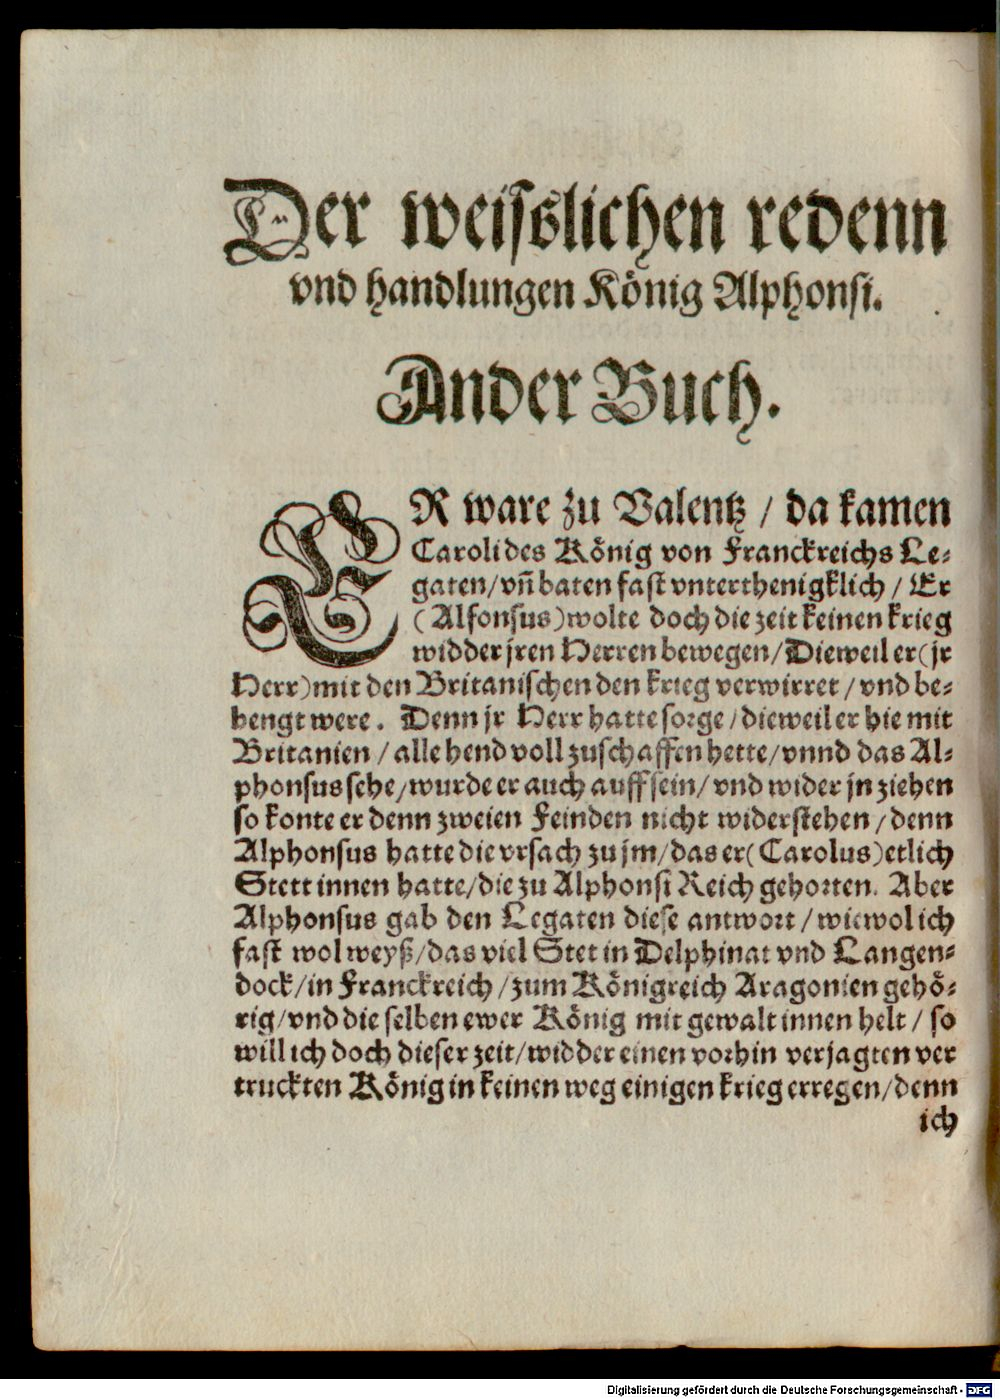 Der weiſslichen redenn
vnd handlungen König Alphonſi.
Ander Buch.
ER ware zu Valentz / da kamen
Caroli des König von Franckreichs Le⸗
gaten/ vñ baten faſt vnterthenigklich / Er
( Alfonſus ) wolte doch die zeit keinen krieg
widder jren Herren bewegen/ Dieweil er ( jr
Herr) mit den Britaniſchen den krieg verwirret / vnd be⸗
hengt were. Denn jr Herr hatte ſorge / dieweil er hie mit
Britanien / alle hend voll zuſchaffen hette/ vnnd das Al⸗
phonſus ſehe/ wurde er auch auff ſein/ vnd wider jn ziehen
ſo konte er denn zweien Feinden nicht widerſtehen / denn
Alphonſus hatte die vrſach zu jm/ das er ( Carolus ) etlich
Stett innen hatte/ die zu Alphonſi Reich gehorten. Aber
Alphonſus gab den Legaten dieſe antwort / wiewol ich
faſt wol weyß/ das viel Stet in Delphinat vnd Langen⸗
dock/ in Franckreich / zum Königreich Aragonien gehö⸗
rig/ vnd die ſelben ewer König mit gewalt innen helt / ſo
will ich doch dieſer zeit/ widder einen vorhin verjagten ver
truckten König in keinen weg einigen krieg erregen/ denn
ich
Digitalisierung gefördert durch die Deutsche Forschungsgemeinschaft - DFG